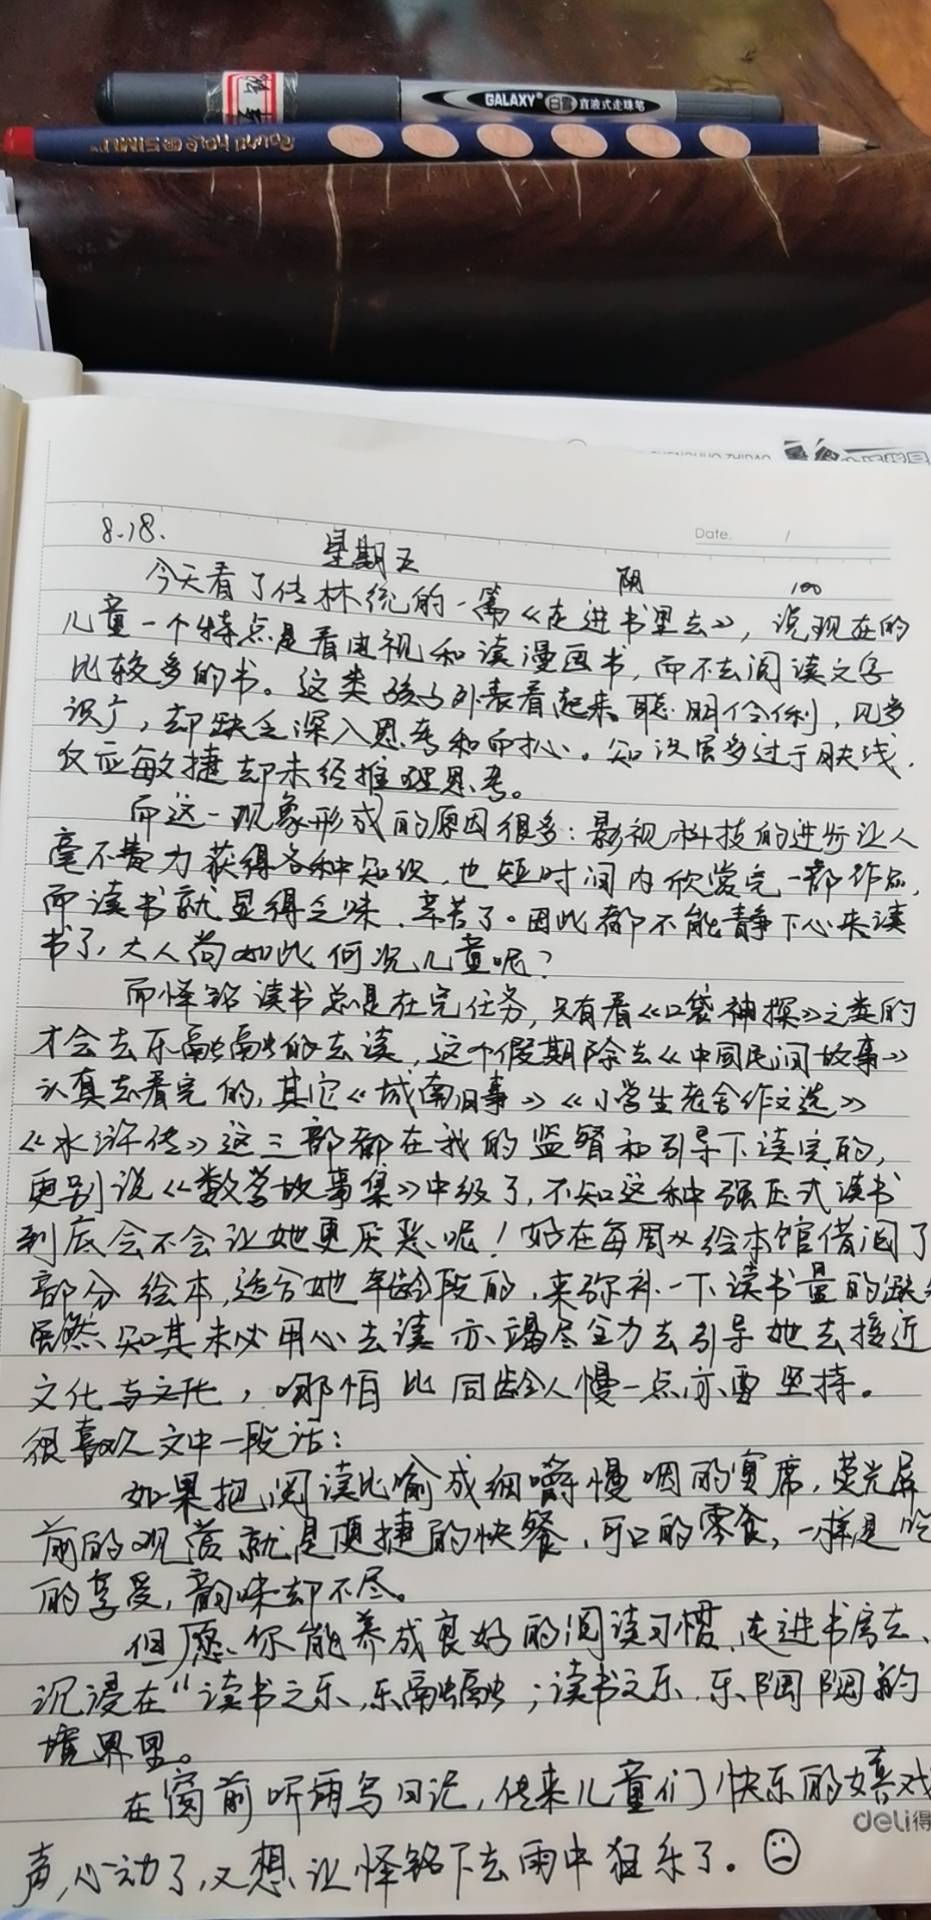 GALAXY 白雪 直液式走珠笔
Date. /
8.18. 星期五 阴 100
今天看了佳林统的一篇《走进书里去》，说现在的
儿童一个特点是看电视和读漫画书，而不去阅读文字
比较多的书。这类孩子外表看起来聪明伶俐，见多
识广，却缺乏深入思考和耐心。知识层多过于肤浅.
仅应敏捷却未经推理思考。
而这一现象形成的原因很多：影视科技的进步让人
毫不费力获得各种知识，也短时间内欣赏完一部作品，
而读书就显得乏味、辛苦了。因此都不能静下心来读
书了，大人尚如此何况儿童呢？
而怿铭读书总是在完任务，只有看《口袋神探》之类的
才会去乐融融的去读，这个假期除去《中国民间故事》
认真去看完的，其它《城南旧事》《小学生老舍作文选》
《水浒传》这三部都在我的监督和引导下读完的，
更别说《数学故事集》中级了，不知这种强压式读书
到底会不会让她更厌恶呢！好在每周从绘本馆借阅了
部分绘本，适合她年龄段的，来弥补一下读书量的缺
虽然知其未必用心去读亦竭尽全力去引导她去接近
文化与文化，哪怕比同龄人慢一点亦要坚持。
很喜欢文中一段话：
如果把阅读比喻成细嚼慢咽的宴席，荧光屏
前的观赏就是便捷的快餐、可口的零食，一样是吃
的享受，韵味却不尽。
但愿你能养成良好的阅读习惯、走进书房去、
沉浸在“读书之乐，乐融融；读书之乐，乐陶陶的
境界里。
在窗前听雨写日记，传来儿童们快乐的嬉戏
声，心动了，又想让怿铭下去雨中狂乐了。
deli得